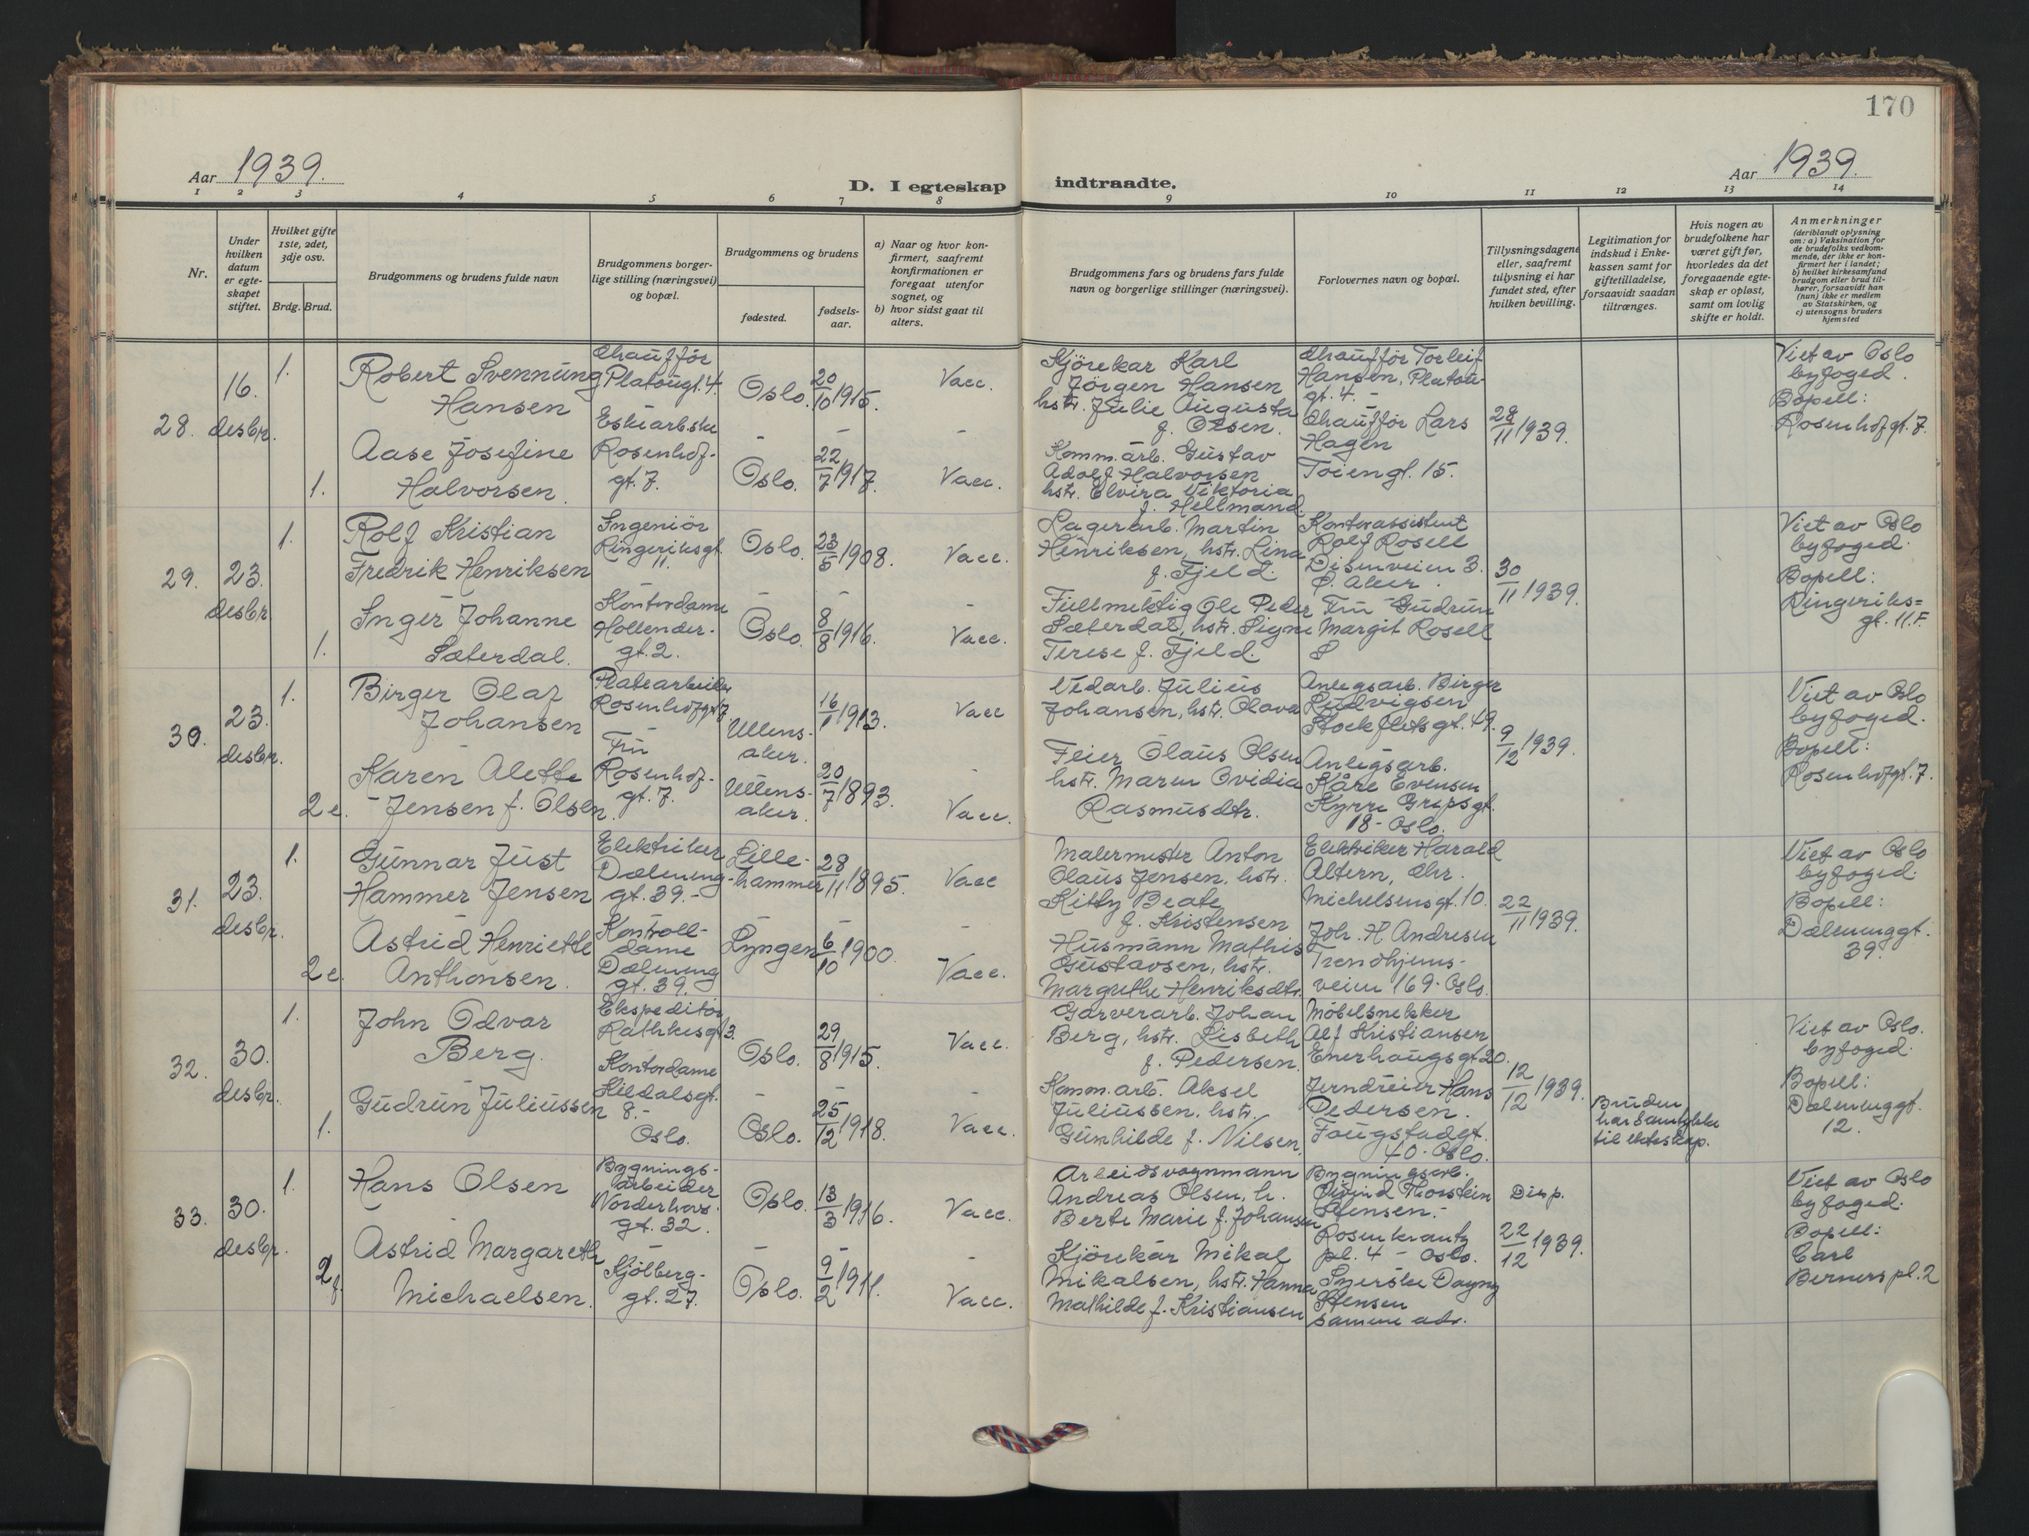 170
Aar 1939.
D. I egteskap indtraadte.
Aar 1939.
1 2 3 4 5 6 7 8 9 10 11 12 13 14
Nr.
Under
hvilken
datum
er egte-
skapet
stiftet.
Hvilket gifte
1ste, 2det,
3dje osv.
Brdg. Brud.
Brudgommens og brudens fulde navn
Brudgommens borger-
lige stilling (næringsvei)
og bopæl.
Brudgommens og brudens
fødested.
fødsels-
aar.
a) Naar og hvor kon-
firmert, saafremt
konfirmationen er
foregaat utenfor
sognet, og
b) hvor sidst gaat til
alters.
Brudgommens fars og brudens fars fulde
navn og borgerlige stillinger (næringsvei).
Forlovernes navn og bopæl.
Tillysningsdagene
eller, saafremt
tillysning ei har
fundet sted, efter
hvilken bevilling.
Legitimation for
indskud i Enke-
kassen samt for
giftetilladelse,
forsaavidt saadan
tiltrænges.
Hvis nogen av
brudefolkene har
været gift før,
hvorledes da det
foregaaende egte-
skap er opløst,
samt om lovlig
skifte er holdt.
Anmerkninger
(deriblandt oplysning
om: a) Vaksination for
de brudefolks vedkom-
mende, der ikke er kon-
firmert her i landet;
b) hvilket kirkesamfund
brudgom eller brud til-
hører, forsaavidt han
(hun) ikke er medlem
av Statskirken, og
c) utensogns bruders
hjemsted
28.
16.
desbr.
1.
Robert Svennung
Hansen
Chauffør
Platougt. 4.
Oslo.
20/10 1915.
Vacc.
Kjørekar Karl
Jörgen Hansen
hstr. Julie Augusta
f. Olsen.
Chauffør Torleif
Hansen, Platou-
gt. 4. -
28/11 1939.
Viet av Oslo
byfoged.
Bopell:
Rosenhofgt. 7.
1.
Aase Josefine
Halvorsen.
Eskearbske
Rosenhof-
gt. 7.
Oslo.
22/7 1917.
Vacc.
Komm.arb. Gustav
Adolf Halvorsen
hstr. Elvira Viktoria
f. Hellmand
Chauffør Lars
Hagen
Töiengt. 15.
29.
23.
desbr.
1.
Rolf Kristian
Fredrik Henriksen
Ingeniör
Ringeriksgt.
11.
Oslo.
23/5 1908.
Vacc.
Lagerarb. Martin
Henriksen, hstr. Lina
f. Fjeld.
Kontorassistent
Rolf Rosell
Disenveien 3.
Ø. Aker.
30/11 1939.
Viet av Oslo
byfoged.
Bopell:
Ringeriks=
gt. 11.F.
1.
Inger Johanne
Sæterdal.
Kontordame
Hollender-
gt. 2.
Oslo.
8/8 1916.
Vacc.
Fullmektig Ole Peder
Sæterdal, hstr. Signe
Terese f. Fjeld.
Fru Gudrun
Margit Rosell
30.
23.
desbr.
1.
Birger Olaf
Johansen
Platearbeider
Rosenhofgt. 7
Ullens-
aker.
16/1 1913.
Vacc
Vedarb. Julius
Johansen, hstr. Olava
Anlegsarb. Birger
Ludvigsen
Stockfletsgt. 49.
9/12 1939.
Viet av Oslo
byfoged.
Bopell:
Rosenhofgt. 7.
2 e.
Karen Alette
Jensen f. Olsen.
Fru
Rosenhof-
gt. 7.
Ullens-
aker.
20/7 1893.
Vacc.
Feier Olaus Olsen
hstr. Maren Ovidia
Rasmusdtr.
Anlegsarb.
Kåre Evensen
Kyrre Grepsgt.
18 - Oslo.
31.
23.
desbr.
1.
Gunnar Just
Hammer Jensen
Elektriker
Dæleneng-
gt. 39. -
Lille-
hammer
28/11 1895.
Vacc
Malermester Anton
Olaus Jensen, hstr.
Kitty Beate
f. Kristensen
Elektriker Harald
Altern, Chr.
Michelsensgt. 10.
22/11 1939.
Viet av Oslo
byfoged.
Bopell:
Dælenenggt.
39.
2 e.
Astrid Henriette
Anthonsen.
Kontroll-
dame
Dæleneng
gt. 39.
Lyngen
6/10 1900.
Vacc.
Husmann Mathis
Gustavsen, hstr.
Margrethe Henriksdtr.
Joh. H. Andresen
Trondhjems-
veien 169. Oslo.
32.
30.
desbr.
1.
John Odvar
Berg.
Ekspeditör
Rathkesgt. 3.
Oslo.
29/8 1915.
Vacc.
Garverarb. Johan
Berg, hstr. Lisbeth
f. Pedersen.
Möbelsnekker
Alf Kristiansen
Enerhaugsgt 20.
12/12 1939.
Viet av Oslo.
byfoged.
Bopell:
Dælenenggt.
12.
1.
Gudrun Juliussen
Kontordame
Kildalsgt.
8. -
Oslo.
Oslo.
25/12 1918.
Vacc.
Komm.arb. Aksel
Juliussen, hstr.
Gunhilde f. Nilsen.
Jerndreier Hans
Pedersen.
Fougstadgt.
40 - Oslo.
Bruden
har samtykke
til ekteskap.
33.
30.
desbr.
1.
Hans Olsen
Bygnings-
arbeider
Norderhovs-
gt. 32.
Oslo.
13/3 1916.
Vacc.
Arbeidsvognmann
Andreas Olsen, h.
Berte Marie f. Johansen
Bygningsarb.
Øivind Thorstein
Stensen. -
Rosenkrantz
pl. 4 - Oslo.
Disp.
22/12 1939.
Viet av Oslo
byfoged.
Bopell:
Carl
Berners pl. 2
2 f.
Astrid Margareth
Michaelsen.
Kjölberg-
gt. 27.
Oslo.
9/2 1911.
Vacc.
Kjörekar Mikal
Mikalsen, hstr. Hanna
Mathilde f. Kristiansen
Syerske Dagny
Stensen
samme adr.